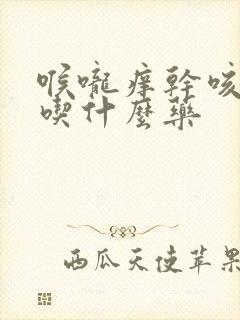 喉嚨痒幹咳
喫什麼藥
西瓜天使苹果